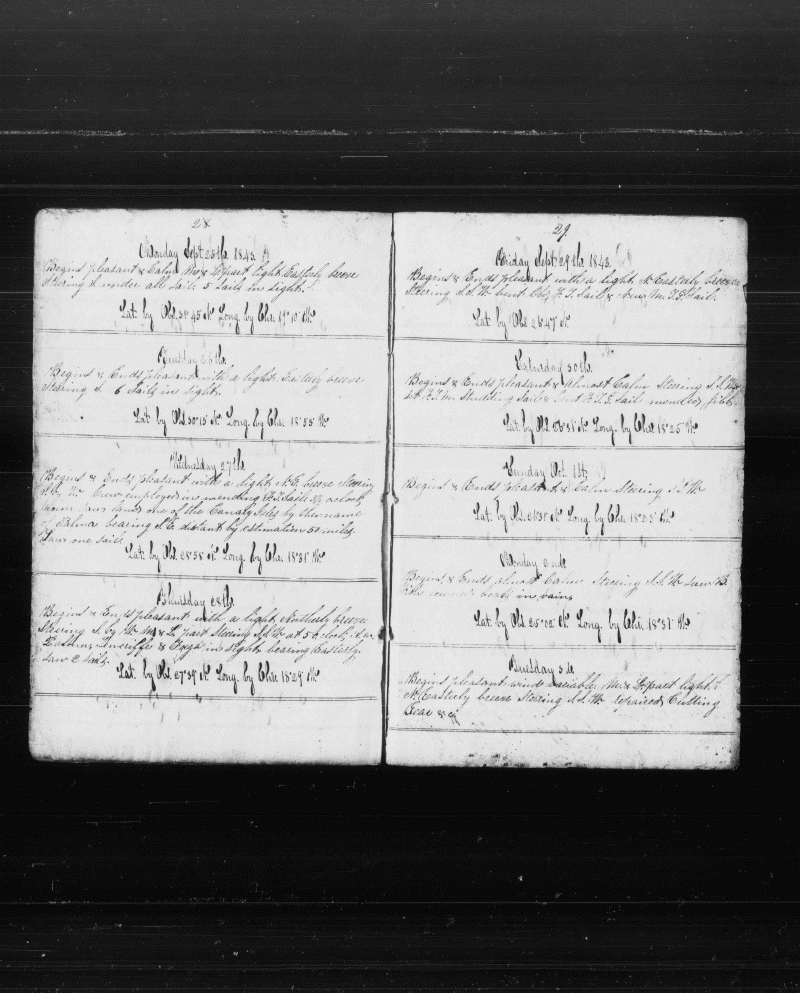 28
Monday Sept 25th 1843.
Begins pleasant & Calm M. & L. part light Easterly breeze
Steering S. under all Sail. 5 Sails in Sight.
Lat. by Obs. 31°45 N. Long. by Chr. 19°10 W.
Tuesday 26th.
Begins & Ends pleasant with a light Easterly breeze
Steering S. 6 Sails in Sight.
Lat by Obs. 30°15 N. Long. by Chr. 18°55 W.
Wednesday 27th.
Begins & Ends pleasant with a light N.E. breeze Steering
S. by W. Crew employed in mending Sails oclock
Saw land one of the Canary Isles by the name
Palma bearing S.E. distant by estimation 50 miles.
Saw one Sail
Lat. by Obs. 28°58 N. Long. by Chr. 18°31 W.
Thursday 28th.
Begins & Ends pleasant with a light Northerly breeze
Steering S. by W. M. & L. part Steering S.S.W. at 5 Oclock A.M.
Palma, Teneriffe & in Sight bearing Easterly.
Saw 2 Sails.
Lat. by Obs. 27°39 N. Long. by Chr. 18°29 W.
29.
Friday Sept 29th 1843.
Begins & Ends pleasant with a light N. Easterly breeze
Steering S.S.W. bent Sail & M.T.G. Sail.
Lat by Obs 26°47 N.
Saturday 30th.
Begins & Ends pleasant & almost Calm Steering S.S.W.
Set Studding Sail & bent Sail mended jibb.
Lat. by Obs. Long. by Chr. 18°25 W.
Sunday Oct. 1st.
Begins & Ends pleasant & Calm Steering S.S.W.
Lat. by Obs. Long. by Chr.
Monday 2nd.
Begins & Ends almost Calm Steering S.S.W. Saw B.
boats in vain
Lat. by Obs. 25°02 N. Long. by Chr. 18°37 W.
Tuesday 3d.
Begins pleasant wind variable M. & L. part light
N. Easterly breeze Steering S.S.W. repaired Cutting
Gear &c